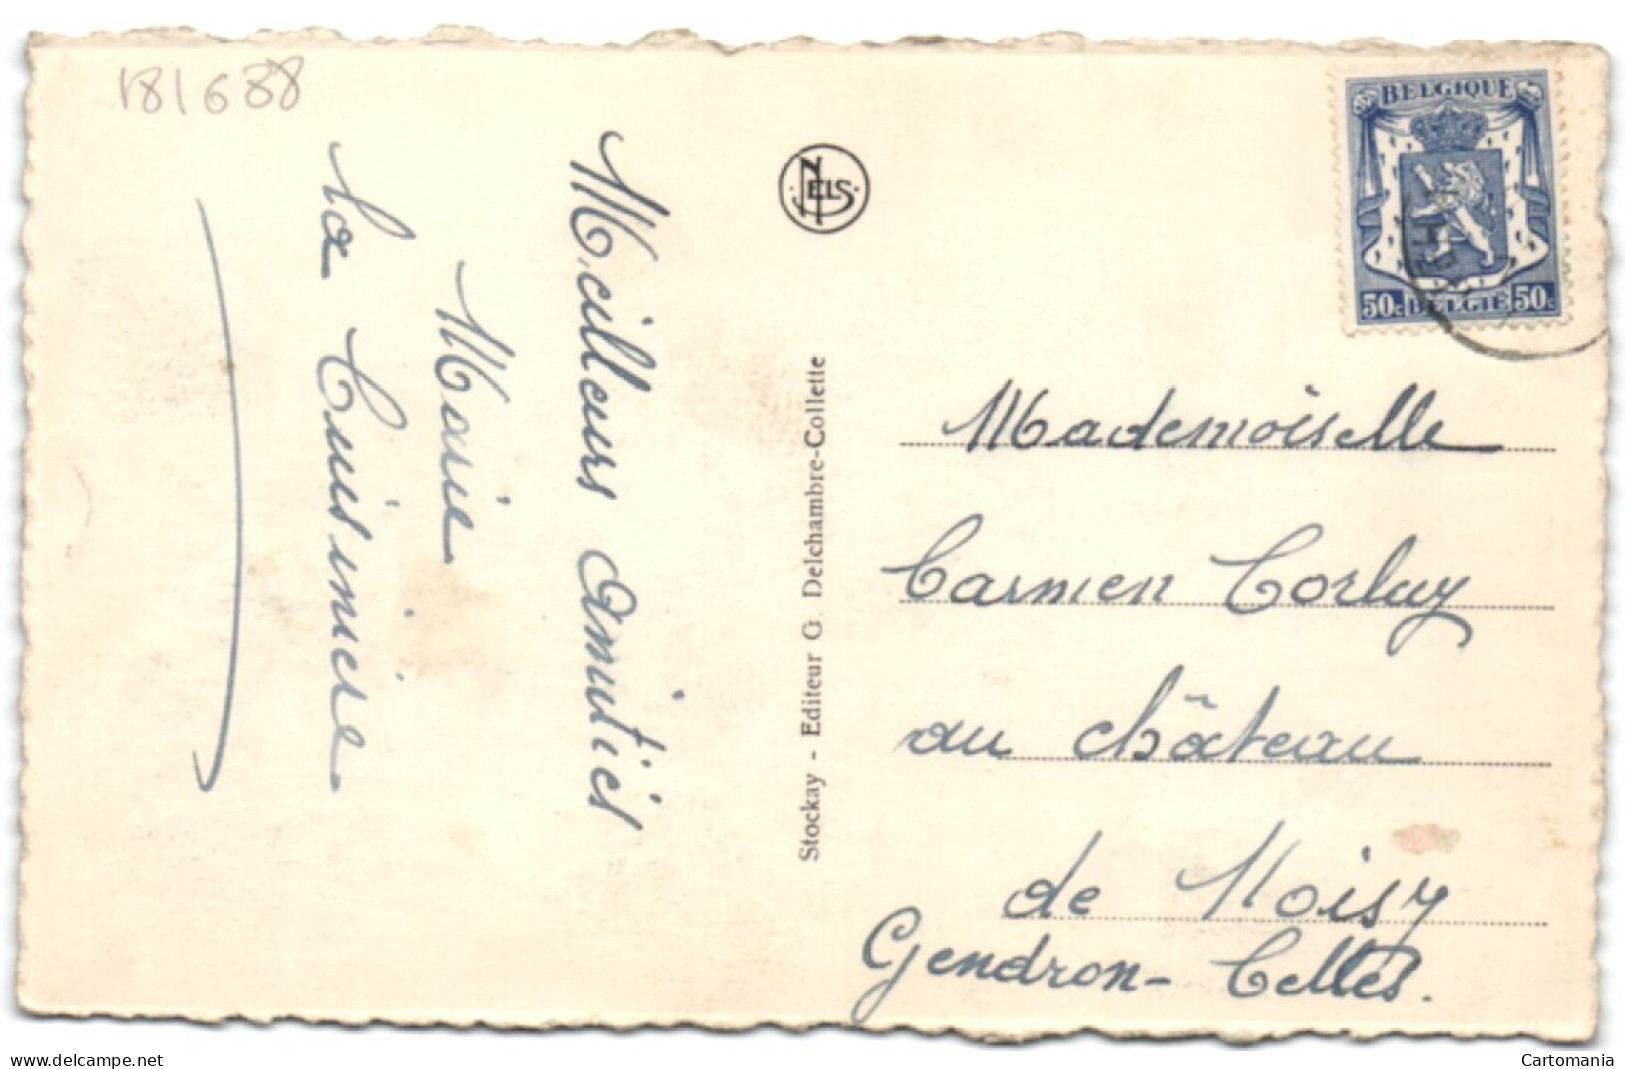 181688
Meilleurs Amitiés
Marie
la Cuisinière
NELS
Stockay - Editeur G. Delchambre-Collette
BELGIQUE
50c BELGIË 50c
Mademoiselle
Carmen Corluy
au château
de Noisy
Gendron-Celles.
www.delcampe.net
Cartomania